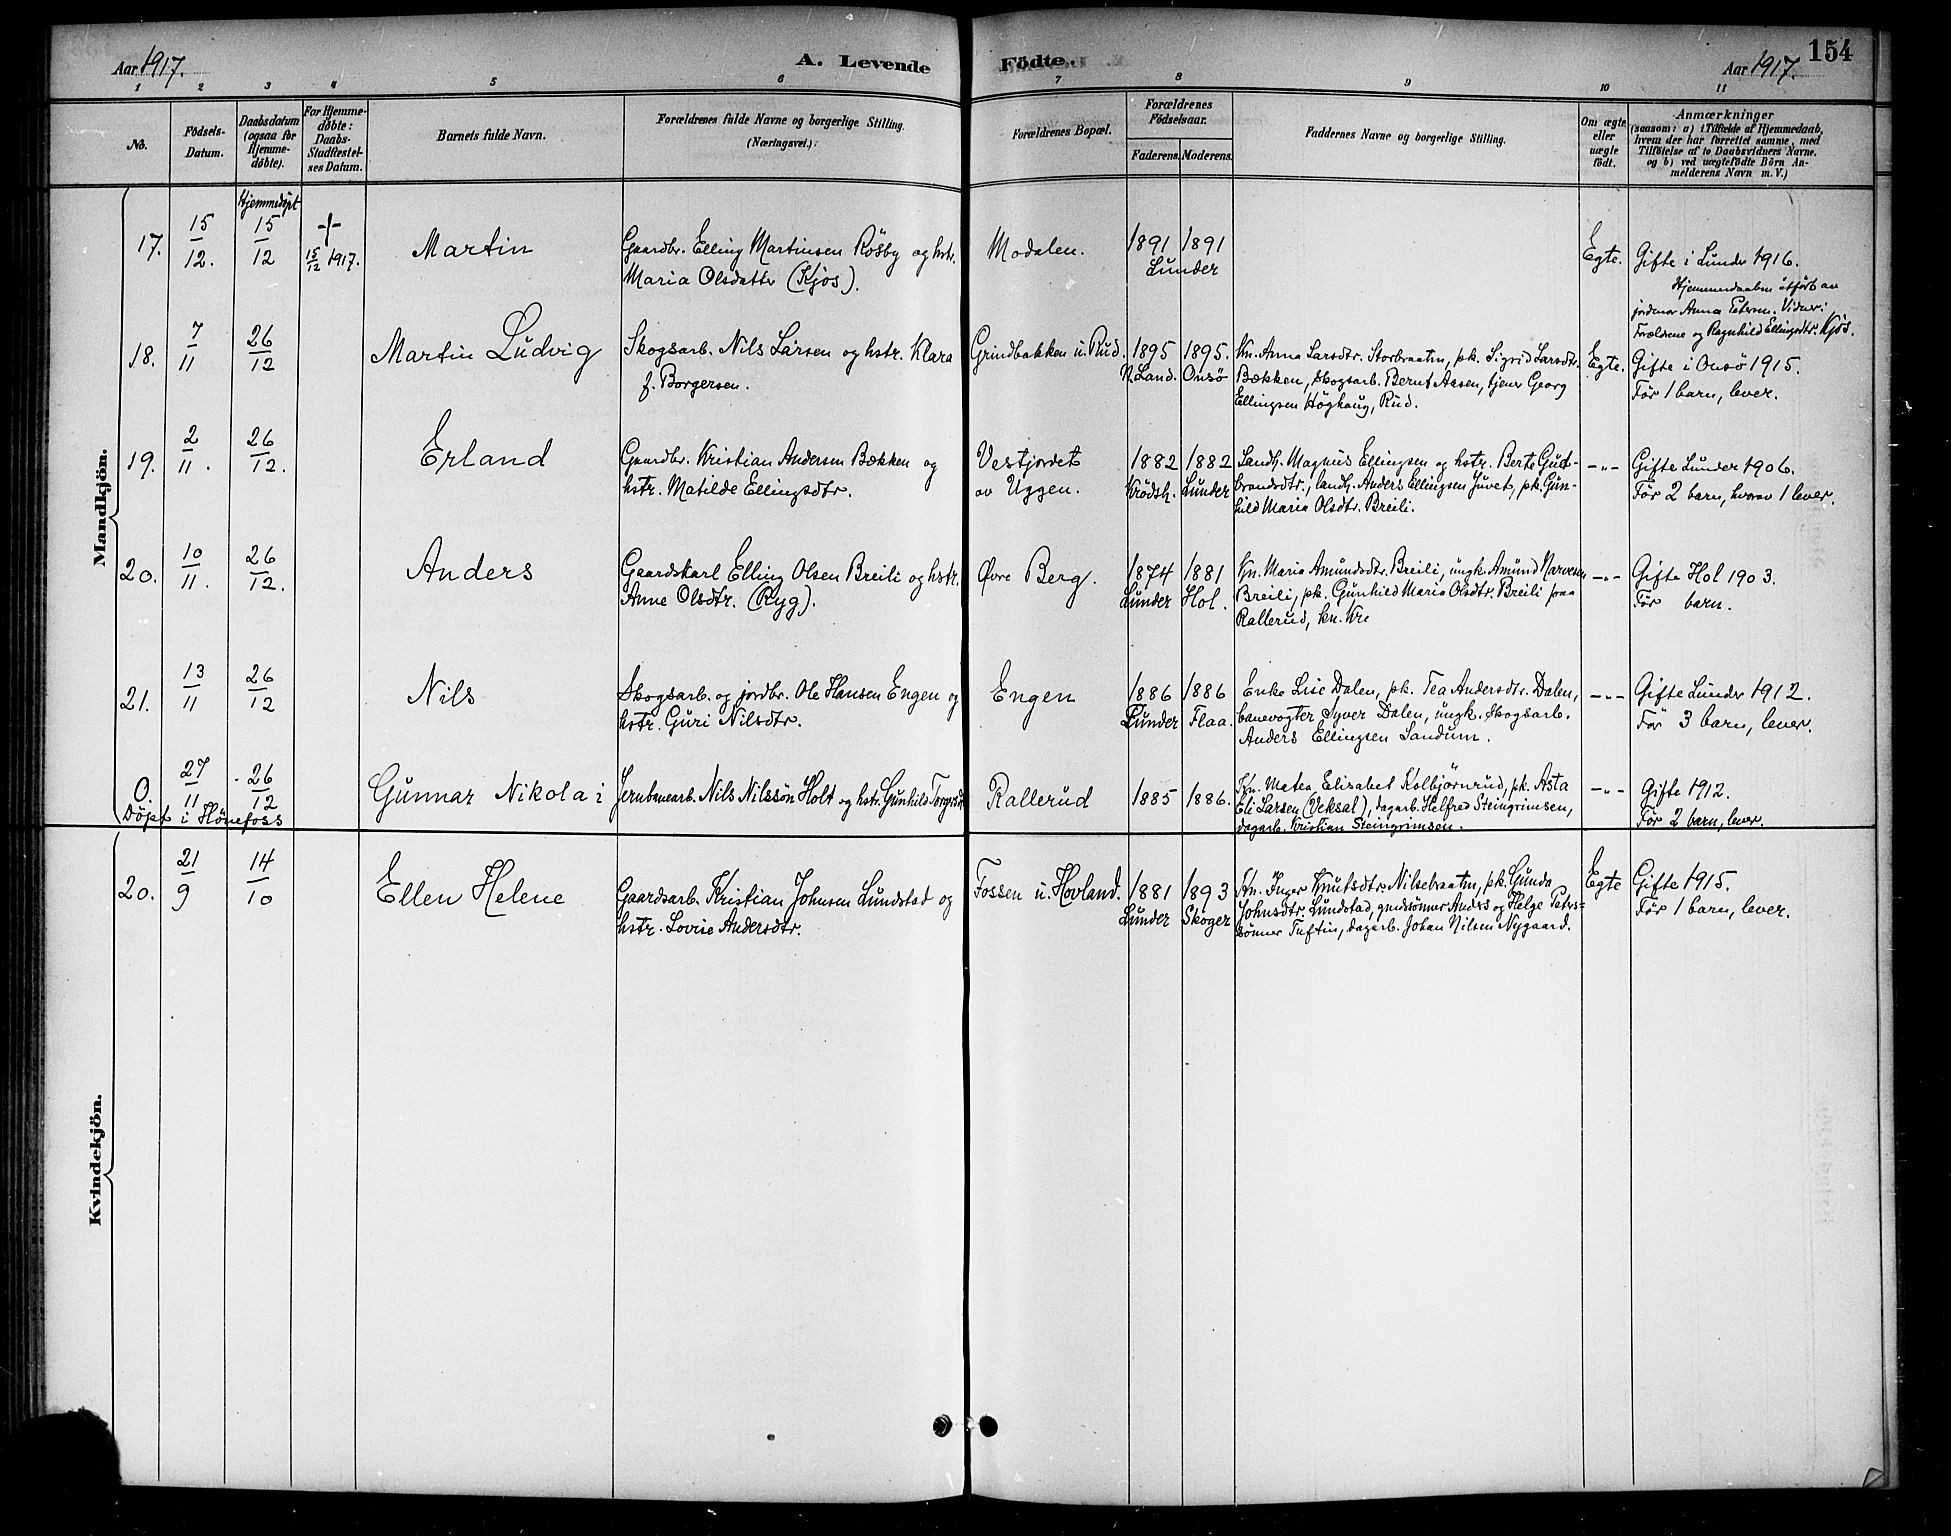 Aar 1917. A. Levende Fødte. Aar 1917. 154
1 2 3 4 5 6 7 8 9 10 11
No.
Fødsels-
Datum.
Daabsdatum
(ogsaa for
Hjemme-
døbte).
For Hjemme-
døbte:
Daabs-
Stadfæstel-
ses Datum.
Barnets fulde Navn.
Forældrenes fulde Navne og borgerlige Stilling.
(Næringsvei.)
Forældrenes Bopæl.
Forældrenes
Fødselsaar.
Faderens. Moderens.
Faddernes Navne og borgerlige Stilling.
Om ægte
eller
uægte
født.
Anmærkninger
(saasom: a) i Tilfælde af Hjemmedaab,
hvem der har forrettet samme, med
Tilføielse af to Daabsvidners Navne.
og b) ved uægtefødte Börn An-
melderens Navn m. V.)
Mandkjön.
Hjemmedöpt
17. 15/12. 15/12 + 15/12 1917.
Martin
Gaardbr. Elling Martinsen Rösby og hstr.
Maria Olsdatter (Kjös).
Modalen.
1891 1891
Lunder
Egte.
Gifte i Lunder 1916.
Hjemmedaaben utfört av
jordmor Anna Petersen. Vidner:
Forældrene og Ragnhild Ellingsdtr. Kjös.
18. 7/11 26/12
Martin Ludvig
Skogsarb. Nils Larsen og hstr. Klara
f. Borgersen.
Grindbakken u. Rud.
1895 1895.
N. Land. Onsö
Kn. Anna Larsdtr. Storbraaten, pk. Sigrid Larsdtr.
Bækken, skogsarb. Bernt Aasen, tjener Georg
Ellingsen Höghaug, Rud.
Egte.
Gifte i Onsö 1915.
Før 1 barn, lever.
19. 2/11. 26/12.
Erland
Gaardbr. Kristian Andersen Bækken og
hstr. Matilde Ellingsdtr.
Vestjordet
av Uggen.
1882 1882
Krödsh. Lunder
Landh. Magnus Ellingsen og hstr. Berte Gud-
brandsdtr., landh. Anders Ellingsen Juvet, pk. Gun-
hild Maria Olsdtr. Breili.
-"-
Gifte Lunder 1906.
Før 2 barn, hvorav 1 lever.
20. 10/11. 26/12.
Anders
Gaardskarl Elling Olsen Breili og hstr.
Anne Olsdtr. (Ryg).
Øvre Berg.
1874 1881
Lunder Hol.
Kn. Maria Amundsdtr. Breili, ungk. Amund Narvesen
Breili, pk. Gunhild Maria Olsdtr. Breili paa
Rallerud, kn. Kre
-"-
Gifte Hol 1903.
Før barn.
21. 13/11 26/12
Nils
Skogsarb. og jordbr. Ole Hansen Engen og
hstr. Guri Nilsdtr.
Engen
1886 1886
Lunder Flaa.
Enke Lise Dalen, pk. Tea Andersdtr. Dalen,
banevogter Syver Dalen, ungk. skogsarb.
Anders Ellingsen Sandum.
-"-
Gifte Lunder 1912.
Før 3 barn, lever.
0. 27/11 26/12
Döpt i Hönefoss
Gunnar Nikolai
Jernbanearb. Nils Nilssön Holt og hstr. Gunhild
Rallerud
1885 1886.
Kn. Matea Elisabet Kolbjörnrud, pk. Asta
Eli Larsen (Veksal), dagarb. Helfred Steingrimsen,
dagarb. Kristian Steingrimsen.
-"-
Gifte 1912.
Før 2 barn, lever.
Kvindekjön.
20. 21/9 14/10
Ellen Helene
Gaardsarb. Kristian Johnsen Lundstad og
hstr. Lovise Andersdtr.
Fossen u. Hovland.
1881 1893
Lunder Skoger
Kn. Inger Knutsdtr. Nilsebraaten, pk. Gunda
Johnsdtr. Lundstad, grdsönner Anders og Helge Peters-
sönner Tuftin, dagarb. Johan Nilsen Nygaard.
Egte
Gifte 1915.
Før 1 barn, lever.